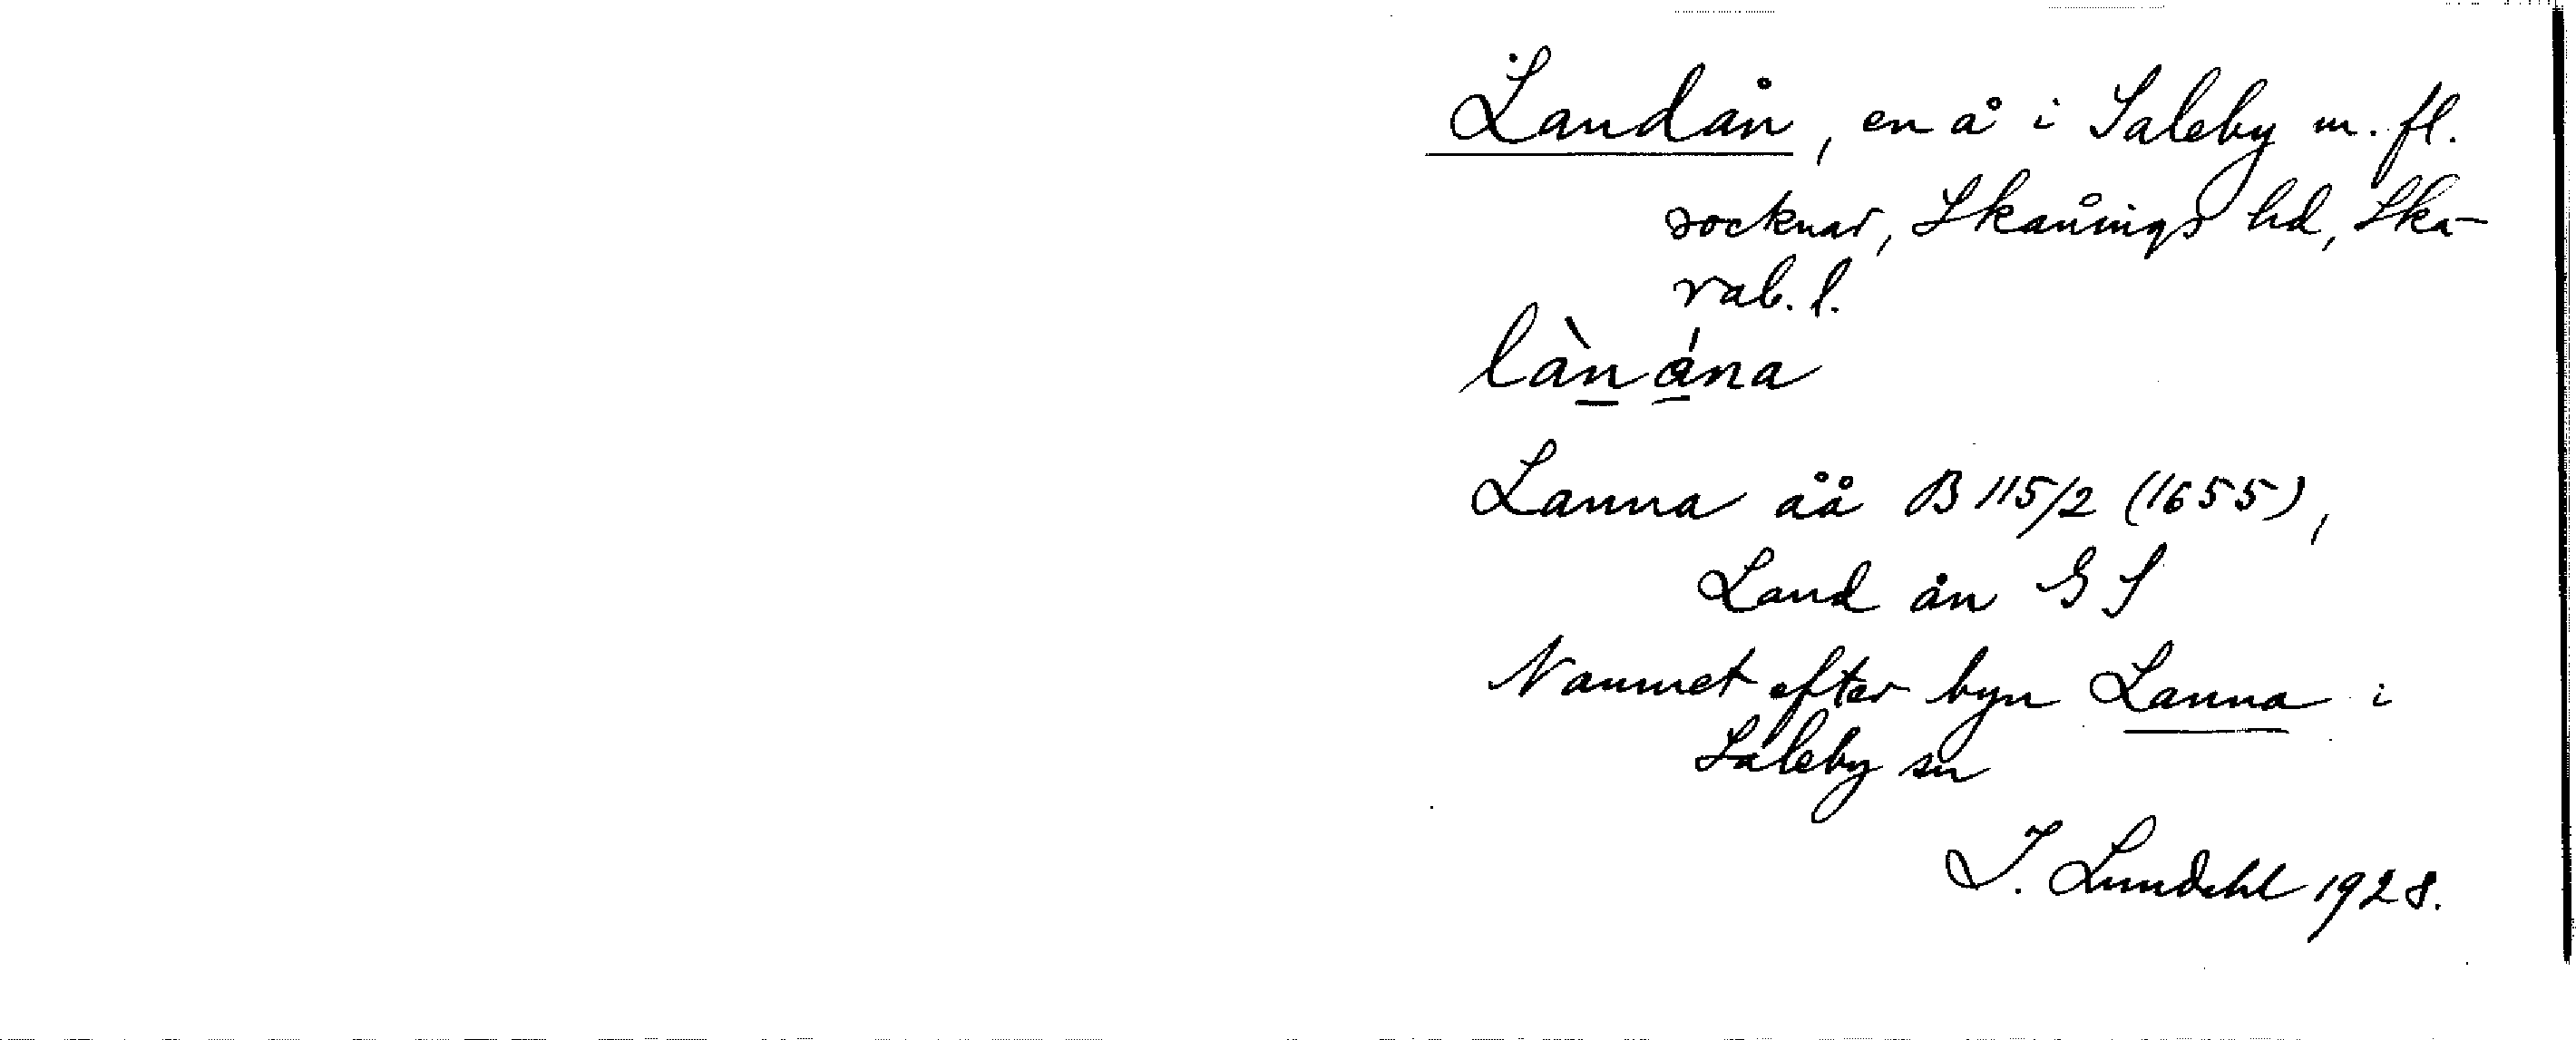 Landån, en å i Saleby m. fl.
socknar, Skånings hd, Ska-
rab. l.
làn ána
Lanna åå B 115/2 (1655),
Land ån GS
Namnet efter byn Lanna i
Saleby sn
I. Lundahl 1928.